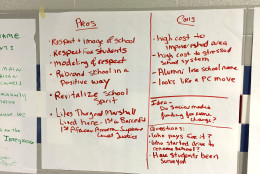 Pros
• Respect + image of school
• Respect for students
• modeling of respect
• Rebrand school in a
positive way
• Revitalize School
Spirit
• Likes Thurgood Marshall
Lived here. 1st
African American Supreme
Court Justice
Cons
• high cost to
impoverished area
• high cost to stressed
school system
• Alumni like school name
• looks like a PC move
Idea:
• Do social media
funding for name
change?
Questions:
• Who pays for it?
• Who started drive to
rename school?
• Have students been
surveyed